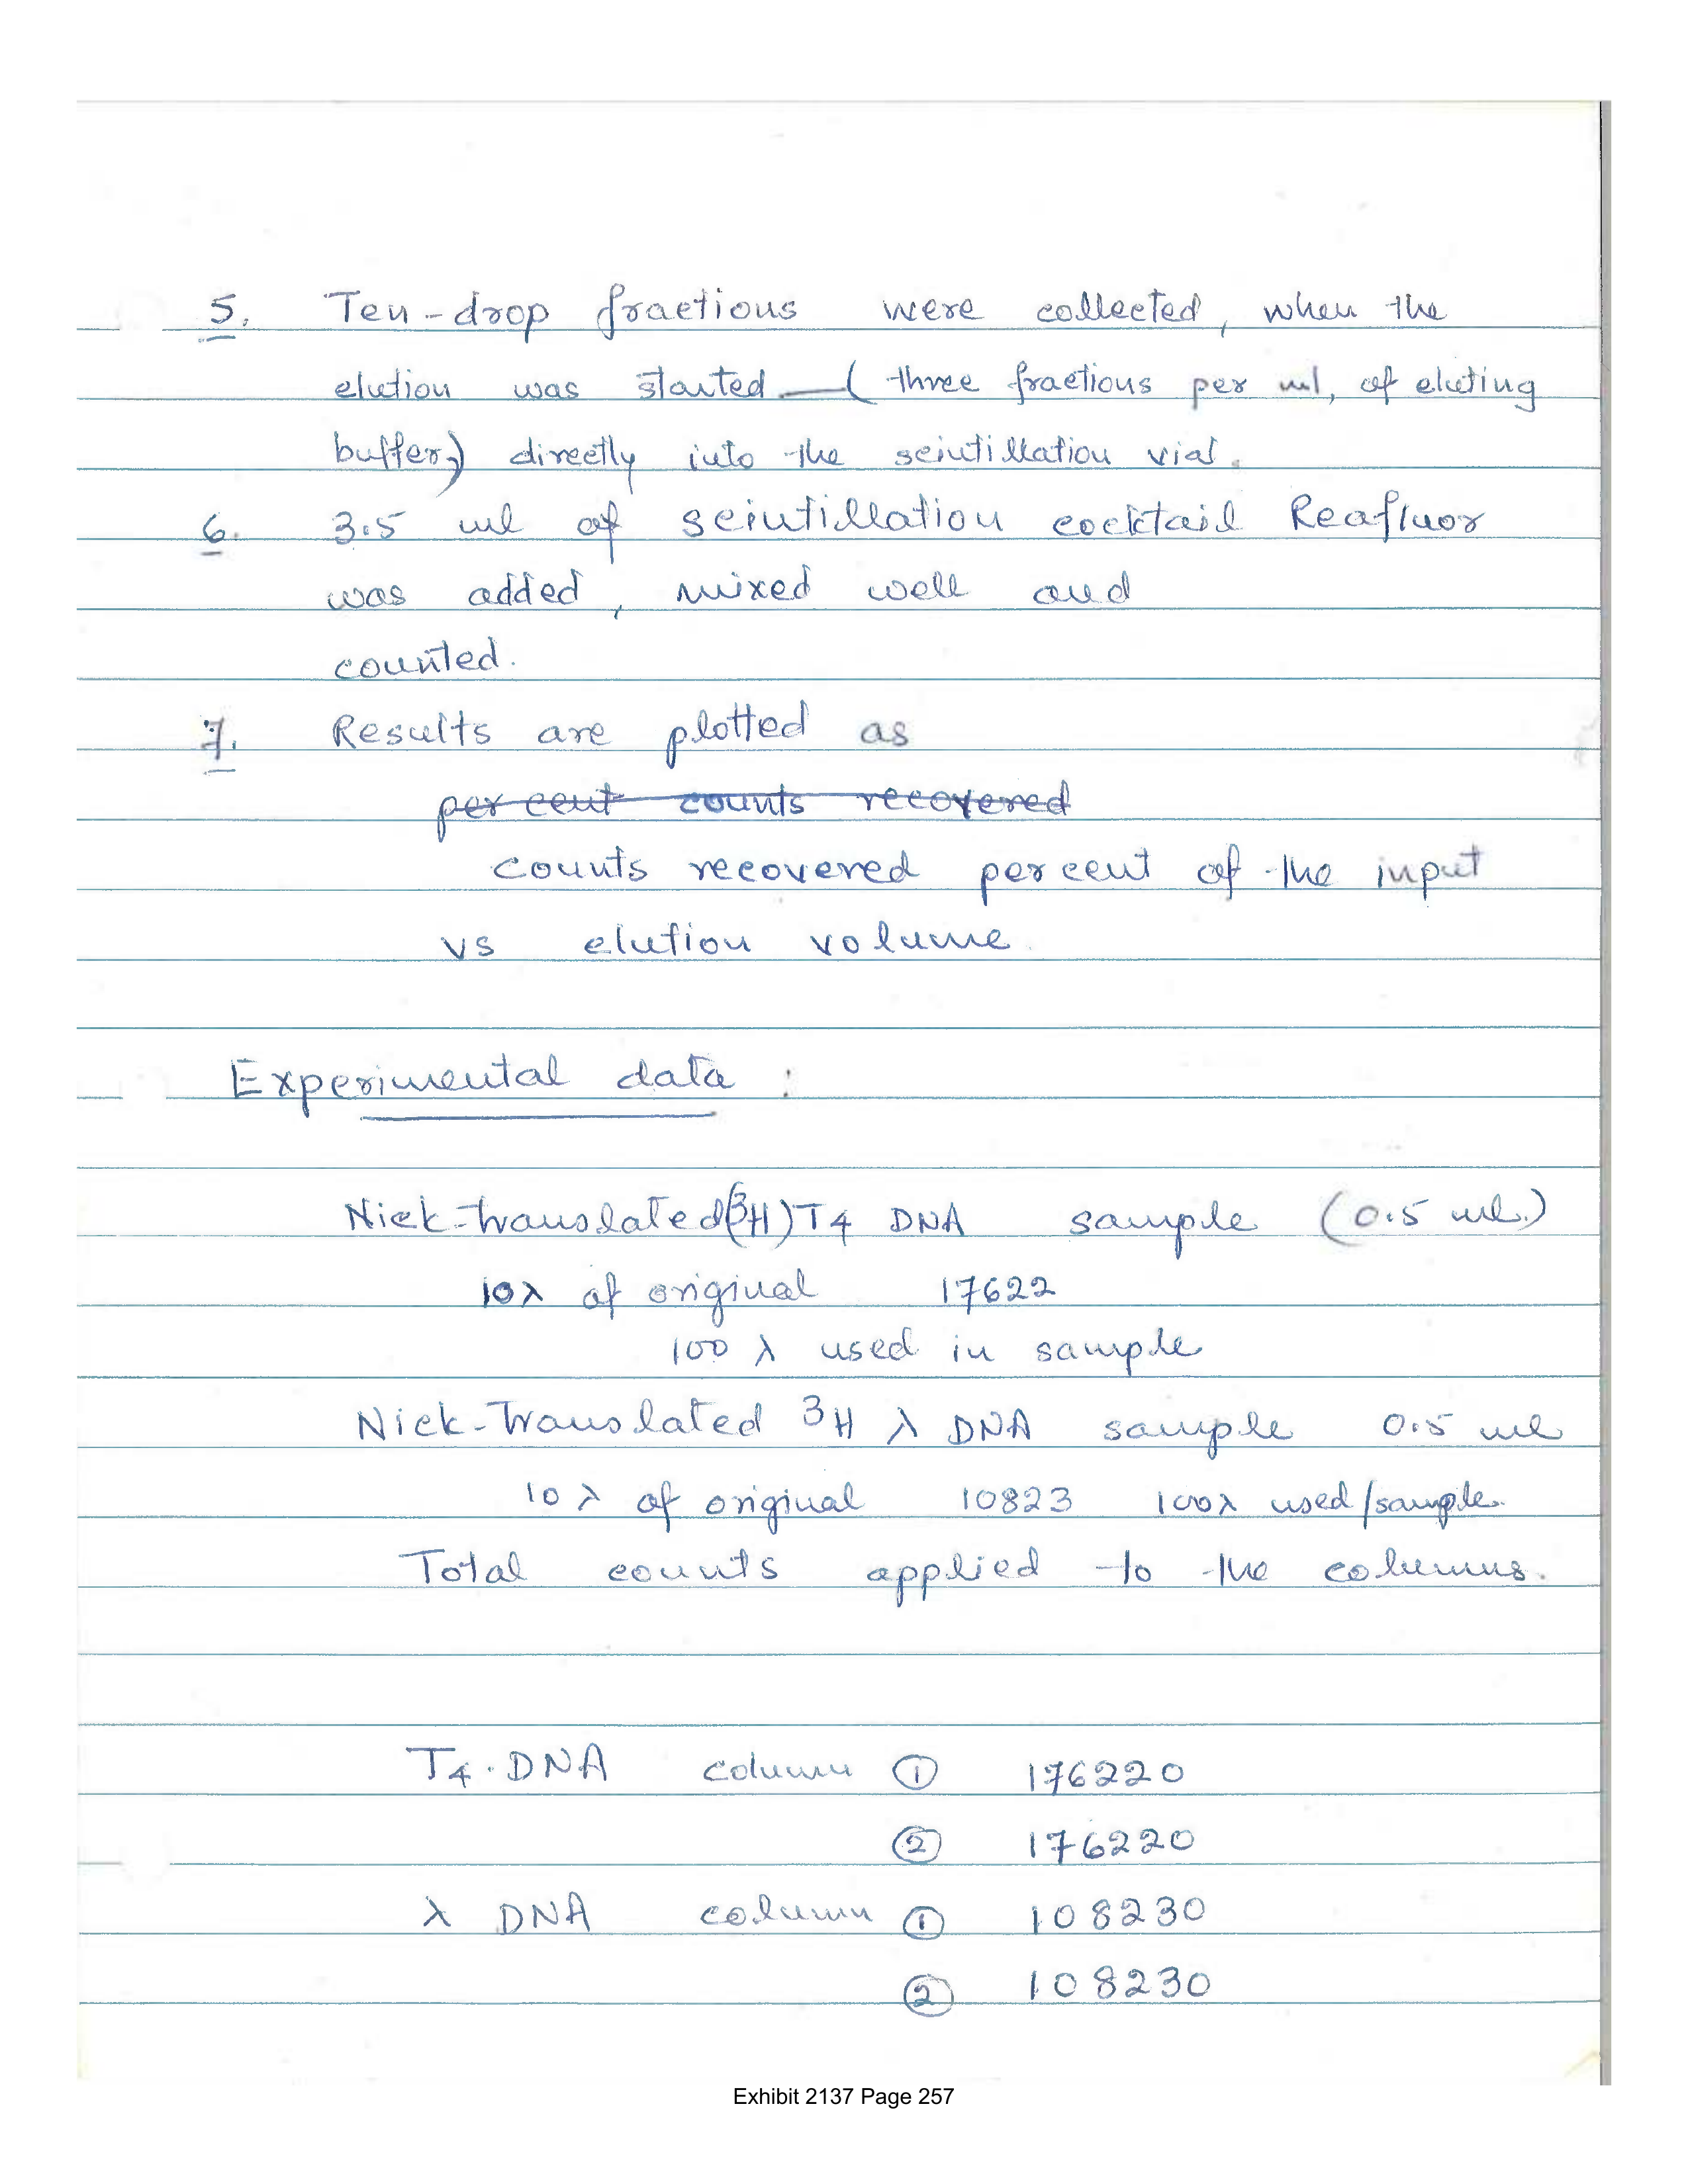 5. Ten-drop fractions were collected, when the
elution was started — (three fractions per ml, of eluting
buffer,) directly into the scintillation vial.
6. 3.5 ml of scintillation cocktail Reafluor
was added, mixed well and
counted.
7. Results are plotted as
per cent counts recovered
counts recovered per cent of the input
vs elution volume.
Experimental data :
Nick-translated (3H) T4 DNA sample (0.5 ml.)
10λ of original 17622
100 λ used in sample
Nick-Translated 3H λ DNA sample 0.5 ml
10 λ of original 10823 100λ used/sample.
Total counts applied to the columns.
T4. DNA column ① 176220
② 176220
λ DNA column ① 108230
② 108230
Exhibit 2137 Page 257